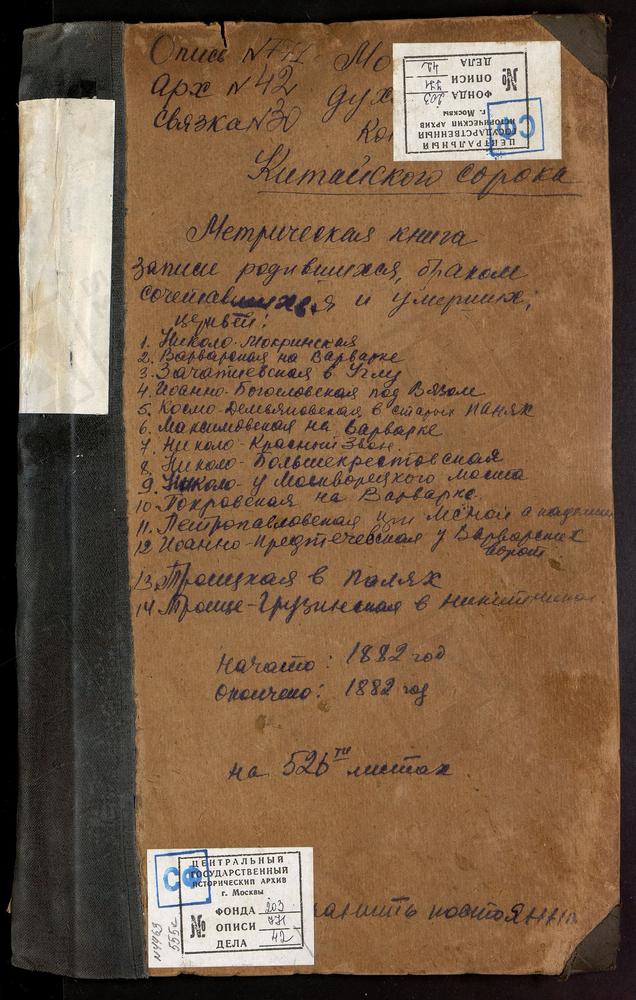 Опись №771 Мо
арх №42 дух
связка №30 Кон
Китайского сорока
№ ФОНДА 203
ОПИСИ 771
ДЕЛА 42
ЦЕНТРАЛЬНЫЙ
ГОСУДАРСТВЕННЫЙ
ИСТОРИЧЕСКИЙ АРХИВ
г. Москвы
СФ
Метрическая книга
записи родившихся, браком
сочетавшихся и умерших,
церквей:
1. Николо-Мокринская
2. Варваровская на Варварке
3. Зачатиевская в Углу
4. Иоанно-Богословская под Вязом
5. Космо-Демьяновская в старых панях
6. Максимовская на Варварке
7. Николо-Красный Звон.
8. Николо-Большекрестовская
9. Николо-у Москворецкого моста
10. Покровская на Варварке.
11. Петропавловская при
12. Иоанно-предтечевская у Варварских
ворот
13. Троицкая в полях
14. Троице-Грузинская в
начато: 1882 год
окончено: 1882 год
на 526ти листах
хранить постоянно
СФ
ЦЕНТРАЛЬНЫЙ
ГОСУДАРСТВЕННЫЙ
ИСТОРИЧЕСКИЙ АРХИВ
г. Москвы
№ ФОНДА 203
ОПИСИ 771
ДЕЛА 42